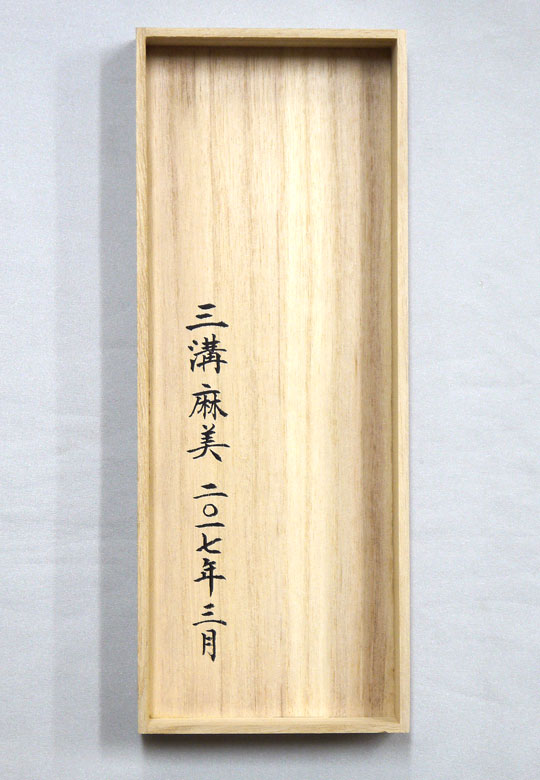 三溝麻美 二〇一七年三月